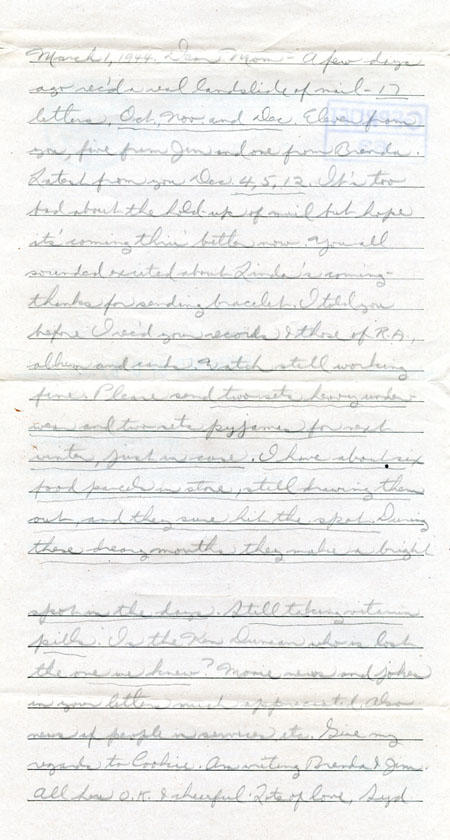 March 1, 1944. Dear Mom - A few days
ago rec'd a real landslide of mail - 17
letters, Oct, Nov and Dec. Eleven from
you, five from Jim and one from Brenda.
Latest from you Dec 4, 5, 12. It's too
bad about the hold-up of mail but hope
its' coming thru' better now. You all
sounded excited about Linda's coming -
thanks for sending bracelet. I told you
before I rec'd your records & those of R.A.,
album and cards. Watch still working
fine. Please send two sets heavy under-
wear and two sets pyjamas for next
winter, just in case. I have about six
food parcels in store, still drawing them
out, and they sure hit the spot. During
these dreary months they make a bright
spot in the days. Still taking vitamin
pills. Is the Ken Duncan who is lost
the one we knew? Movie news and jokes
in your letters much appreciated. Also
news of people in services etc. Give my
regards to Cookie. Am writing Brenda & Jim.
All here O.K. & cheerful. Lots of love, Syd